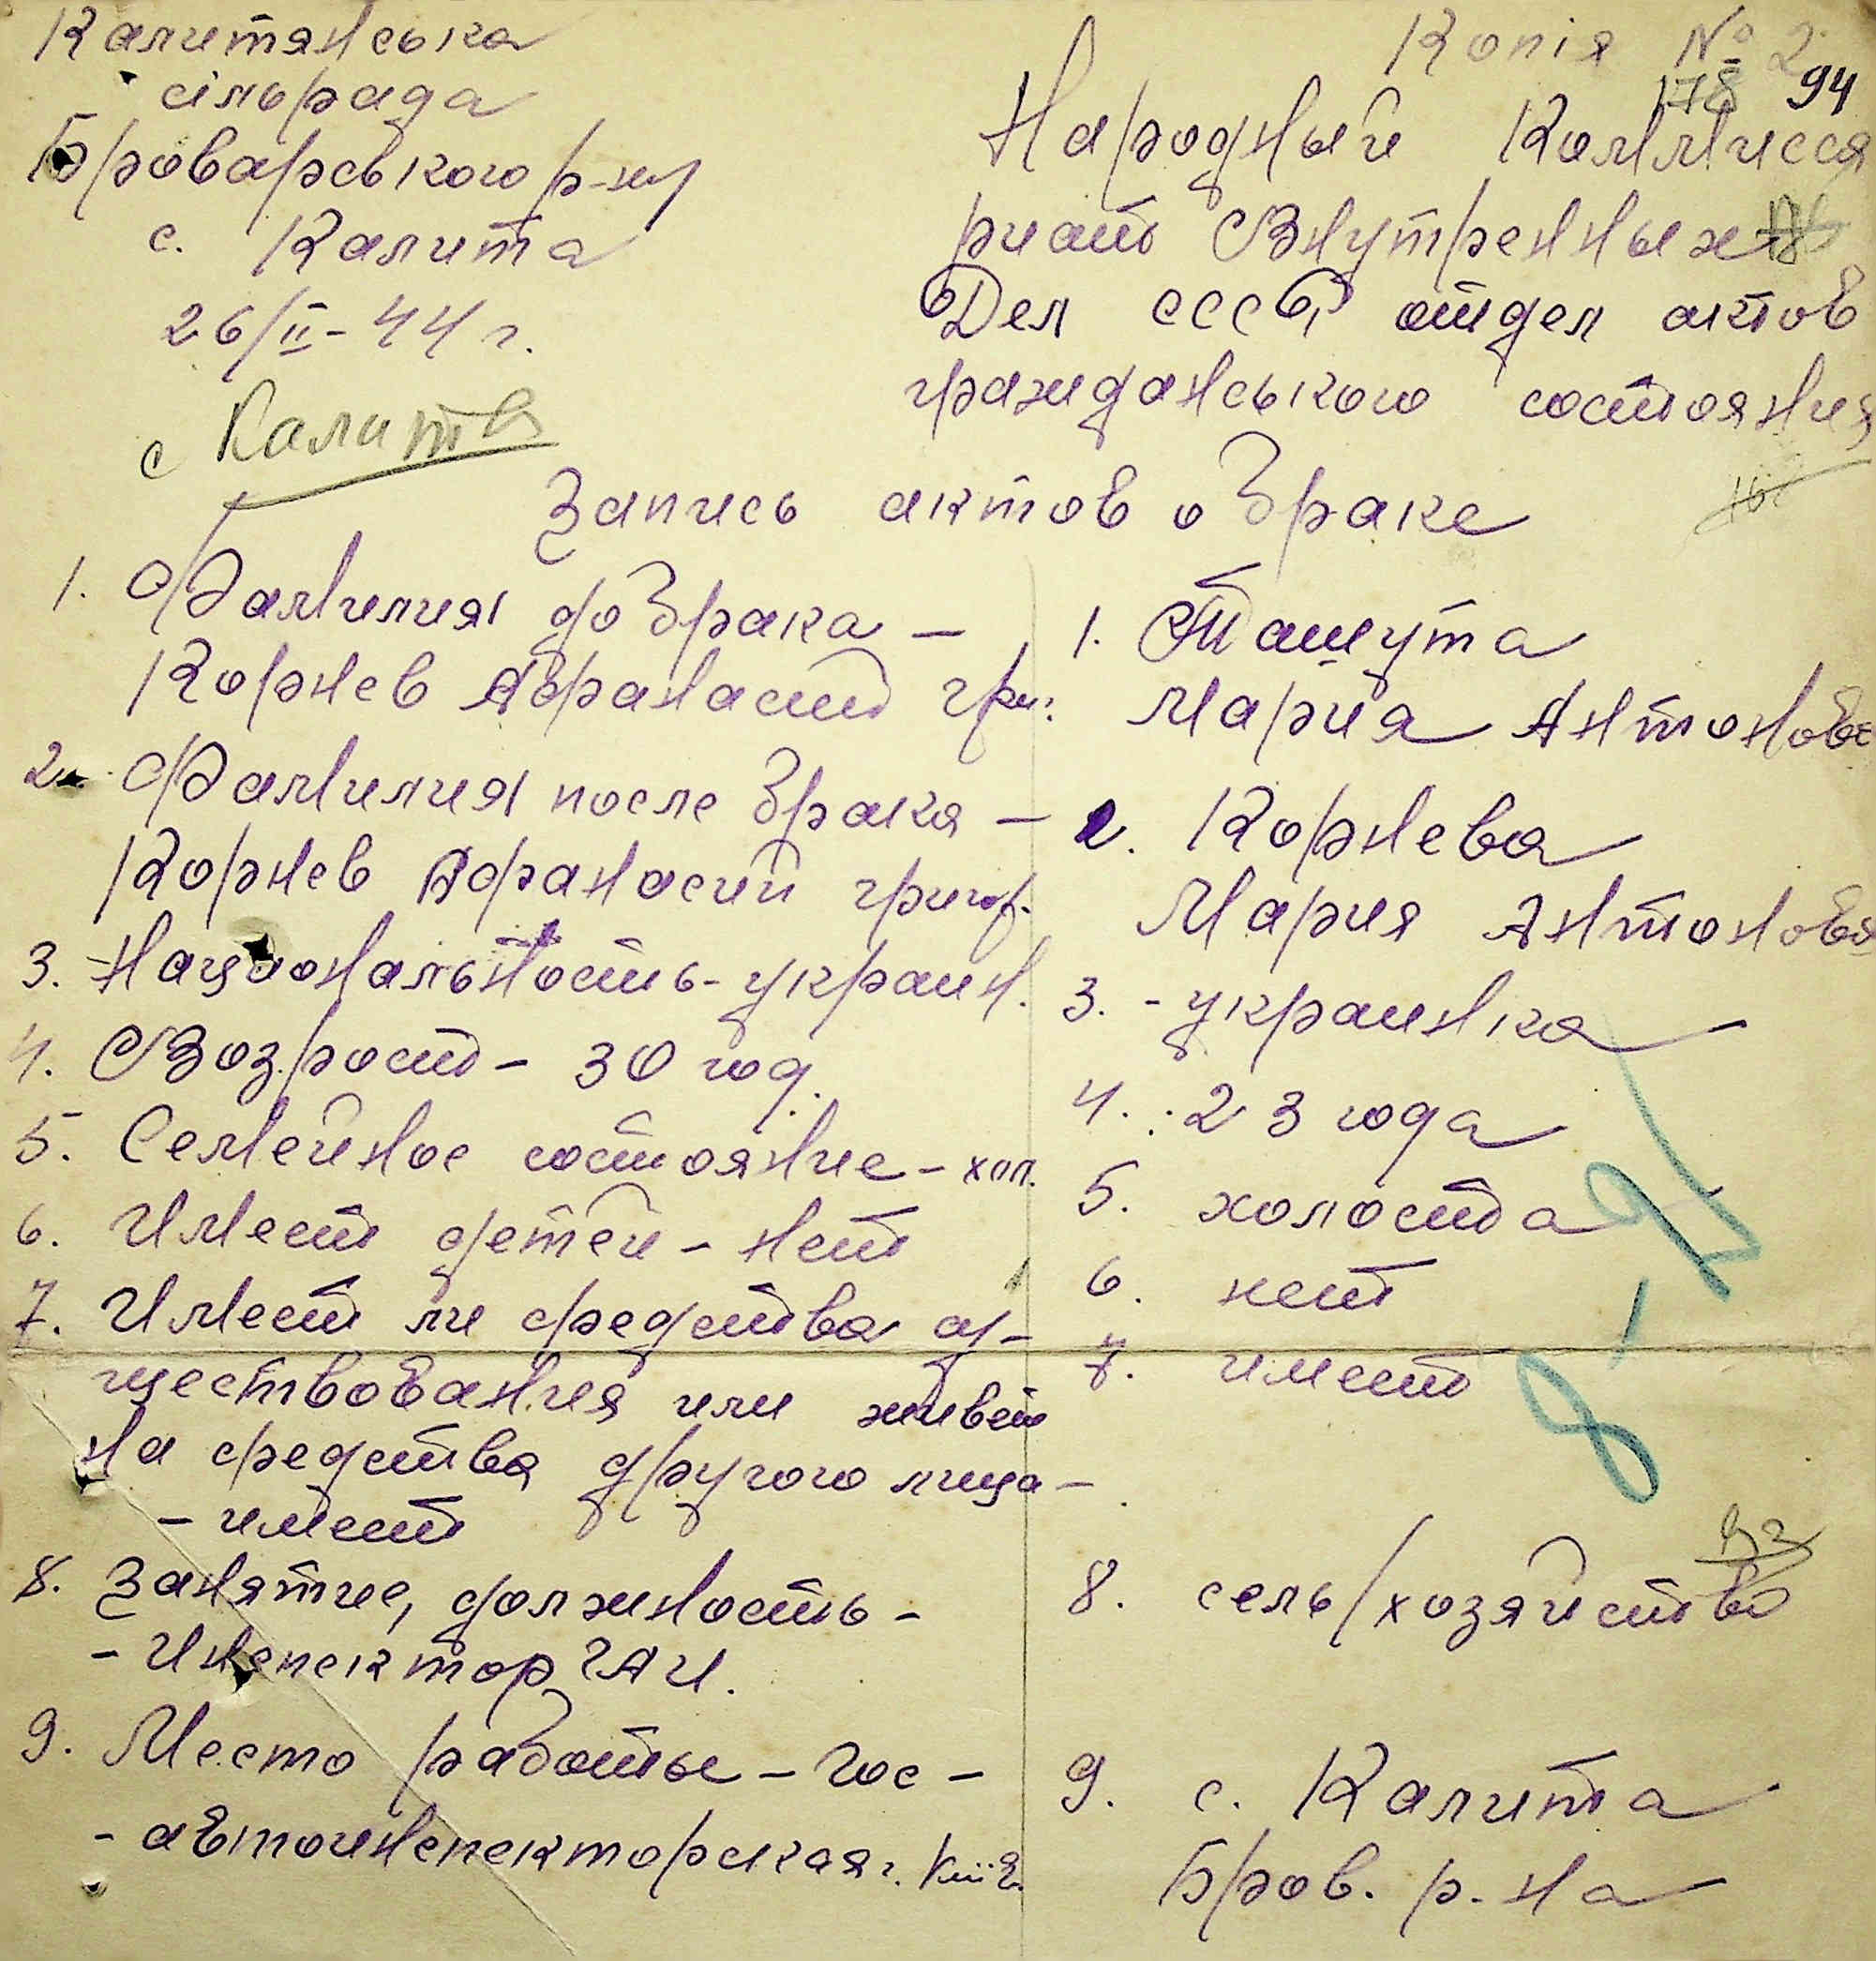 Калитянська
сільрада
Броварського р-ну
с. Калита
26/II-44 г.
с Калита
Копія № 2
94
Народный Коммисса
риат Внутренных
Дел СССР, отдел актов
гражданського состояния
Запись актов о браке
1. Фамилия до брака –
Корнев Афранасий гри:
2. Фамилия после брака –
Корнев Афранасий григор.
3. Национальность - украин.
4. Возрост – 30 год.
5. Семейное состояние – хол.
6. Имеет детей – нет
7. Имеет ли средства су-
ществования или живет
на средства другого лица –
– имеет
8. Занятие, должность –
– Инспектор ГАИ.
9. Место работы – Гос –
– автоинспекторская г. Киев.
1. Ташута
Мария Антонов
2. Корнева
Мария Антонов
3. - украинка
4. 23 года
5. холоста
6. нет
7. имеет
8. сель/хозяйство
9. с. Калита
Бров. р-на